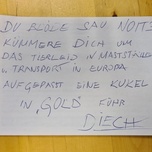 DU BLÖDE SAU NOTTZ
KÜMMERE DICH UM
DAS TIERLEID IN MASTSTÄLLE
U TRANSPORT IN EUROPA
AUFGEPASST EINE KUKEL
IN „GOLD" FÜHR
DIECH